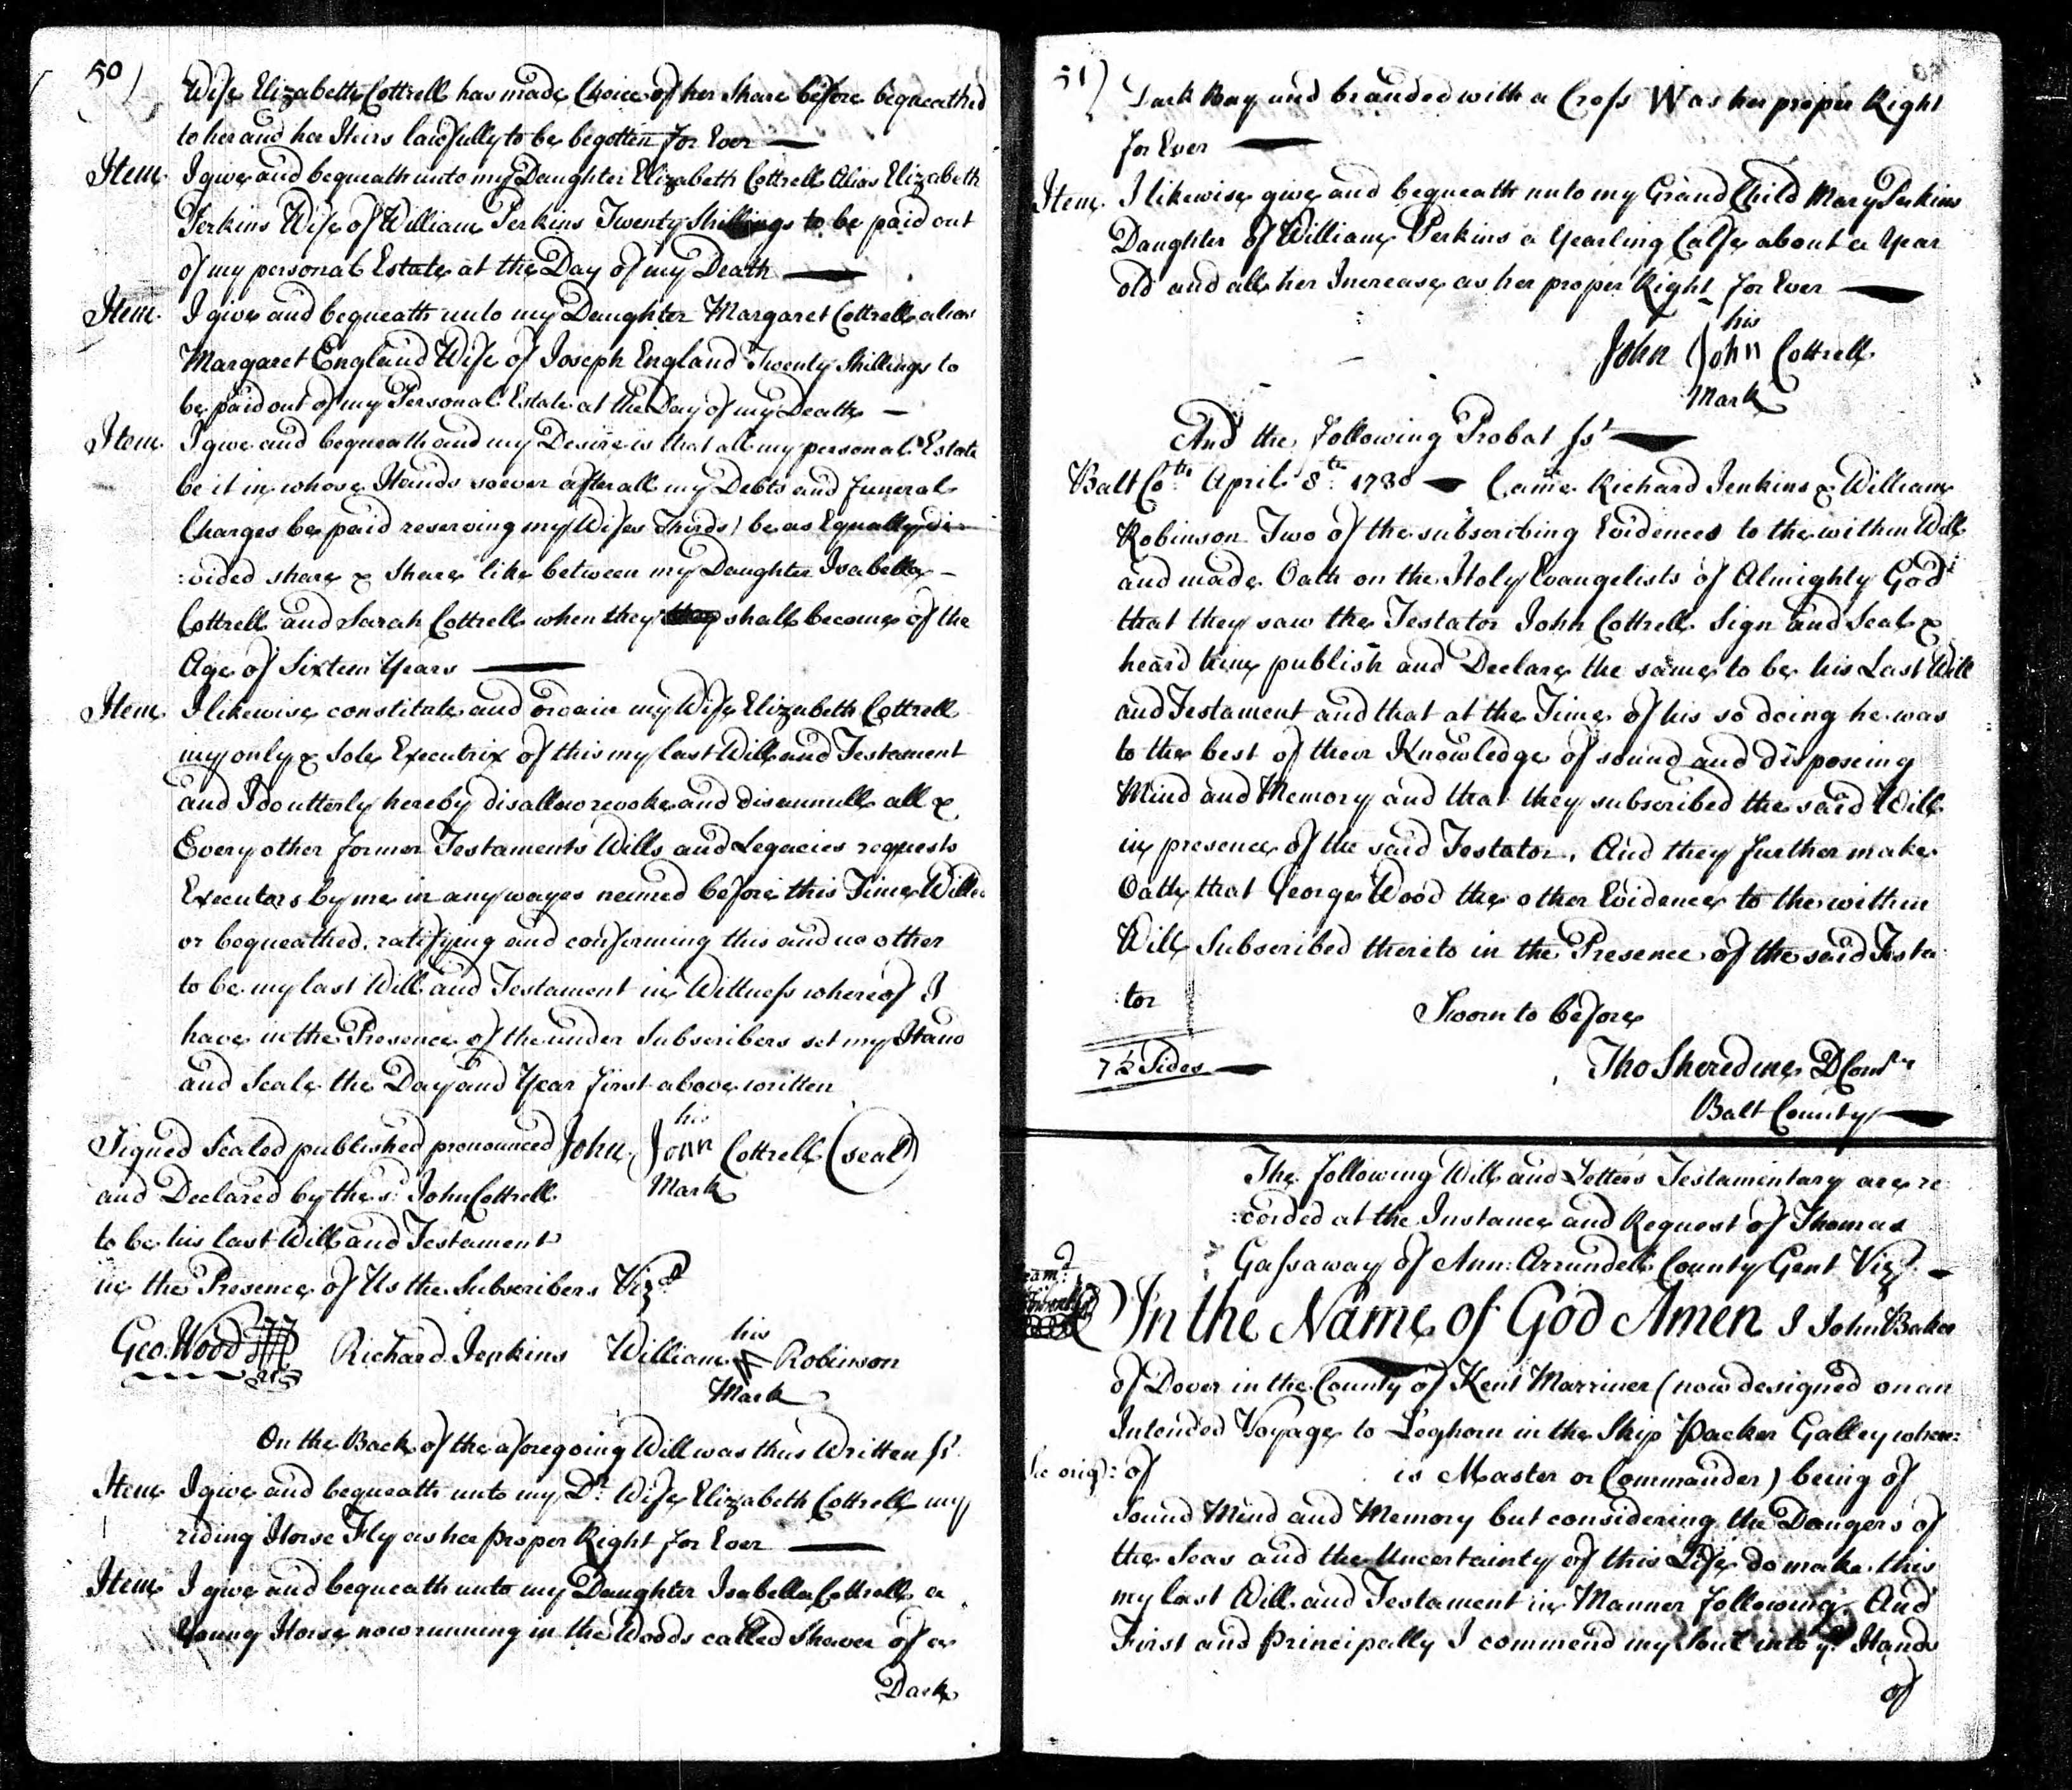 50)
Wife Elizabeth Cottrell has made Choice of her Share before bequeathed
to her and her Heirs lawfully to be begotten for Ever
Item I give and bequeath unto my Daughter Elizabeth Cottrell Alias Elizabeth
Perkins Wife of William Perkins Twenty Shillings to be paid out
of my personal Estate at the Day of my Death
Item I give and bequeath unto my Daughter Margaret Cottrell alias
Margaret England Wife of Joseph England Twenty Shillings to
be paid out of my Personal Estate at the Day of my Death
Item I give and bequeath and my Desire is that all my personal Estate
be it in whose Hands soever after all my Debts and funeral
Charges be paid reserving my Wifes Thirds) be as Equally di
:vided share & Share like between my Daughter Isabella
Cottrell and Sarah Cottrell when they shall become of the
Age of Sixteen Years
Item I likewise constitute and ordain my Wife Elizabeth Cottrell
my only & Sole Executrix of this my last Will and Testament
and I do utterly hereby disallow revoke and disannull all &
Every other former Testaments Wills and Legacies requests
Executors by me in any wayes named before this Time Willed
or bequeathed, ratifying and confirming this and no other
to be my last Will and Testament in Wittness whereof I
have in the Presence of the under Subscribers set my Hand
and Seale the Day and Year first above written
his
Signed Sealed published pronounced John John Cottrell (seal)
and Declared by the sd. John Cottrell Mark
to be his last Will and Testament
in the Presence of Us the Subscribers Vizt
his
Geo: Wood Richard Jenkins William Robinson
Mark
On the Back of the aforegoing Will was thus Written sst
Item I give and bequeath unto my Dr. Wife Elizabeth Cottrell my
riding Horse Fly as her proper Right for Ever
Item I give and bequeath unto my Daughter Isabella Cottrell a
Young Horse now running in the Woods called Shaver of a
Dark
51)
Dark Bay and branded with a Cross W as her proper Right
for Ever
Item I likewise give and bequeath unto my Grand Child Mary Perkins
Daughter of William Perkins a Yearling Calfe about a Year
old and all her Increase as her proper Right for Ever
his
John John Cottrell
Mark
And the following Probat sst
Balt Coty April 8th: 1730 Came Richard Jenkins & William
Robinson Two of the subscribing Evidences to the within Will
and made Oath on the Holy Evangelists of Almighty God
that they saw the Testator John Cottrell Sign and Seal &
heard him publish and Declare the same to be his Last Will
and Testament and that at the Time of his so doing he was
to the best of their Knowledge of sound and disposeing
Mind and Memory and that they subscribed the said Will
in presence of the said Testator. And they further make
Oath that George Wood the other Evidence to the within
Will Subscribed thereto in the Presence of the said Testa
:tor Sworn to before
7½ Sides Tho Sheredine D Comry
Balt County
The following Will and Letters Testamentary are re
:corded at the Instance and Request of Thomas
Gassaway of Ann: Arrundell County Gent Vizt.
In the Name of God Amen I John Baker
of Dover in the County of Kent Marriner (now designed on an
Intended Voyage to Leghorn in the Ship Packer Galley where:
See orig: of is Master or Commander) being of
Sound Mind and Memory but considering the Dangers of
the Seas and the Uncertainty of this Life do make this
my last Will and Testament in Manner following And
First and principally I commend my Soul into ye. Hands
of